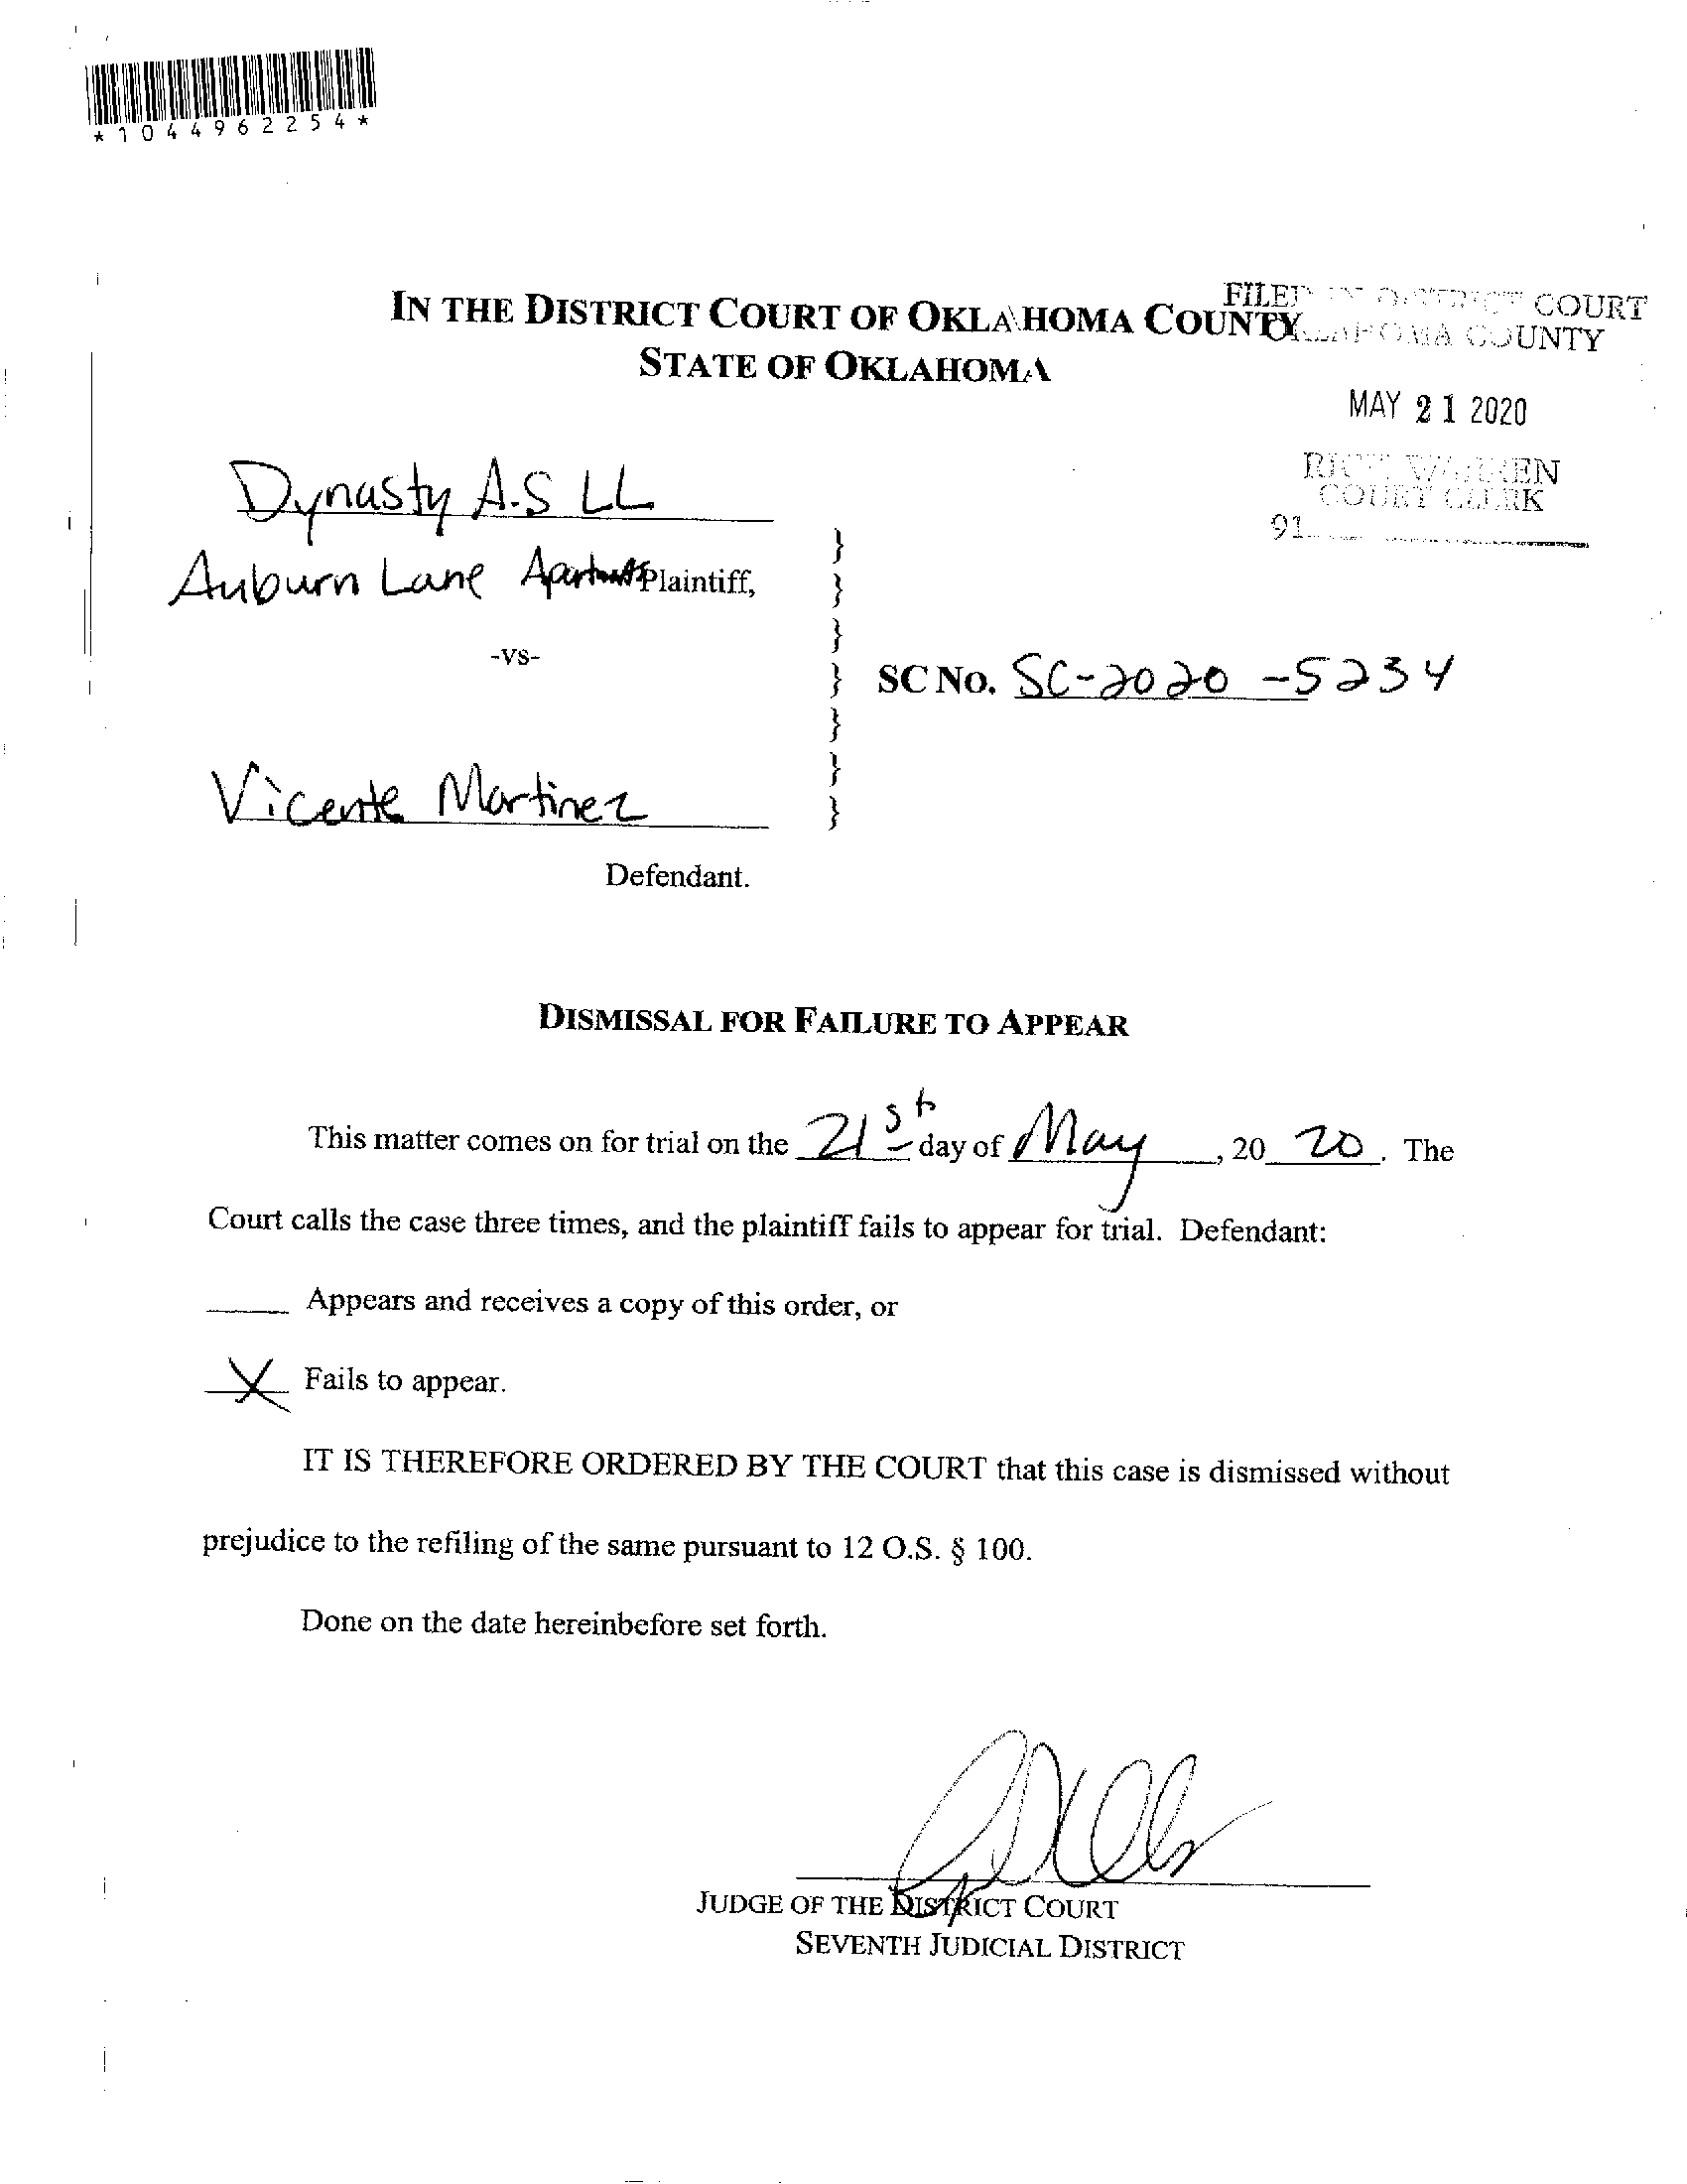 *1044962254*
IN THE DISTRICT COURT OF OKLAHOMA COUNTY
STATE OF OKLAHOMA
FILED IN DISTRICT COURT
OKLAHOMA COUNTY
MAY 21 2020
RICK WARREN
COURT CLERK
91
Dynasty A.S LL
Auburn Lane Apartments Plaintiff,
-VS-
SC NO. SC-2020-5234
Vicente Martinez
Defendant.
DISMISSAL FOR FAILURE TO APPEAR
This matter comes on for trial on the 21st day of May, 20 20. The
Court calls the case three times, and the plaintiff fails to appear for trial. Defendant:
Appears and receives a copy of this order, or
X Fails to appear.
IT IS THEREFORE ORDERED BY THE COURT that this case is dismissed without
prejudice to the refiling of the same pursuant to 12 O.S. § 100.
Done on the date hereinbefore set forth.
JUDGE OF THE DISTRICT COURT
SEVENTH JUDICIAL DISTRICT